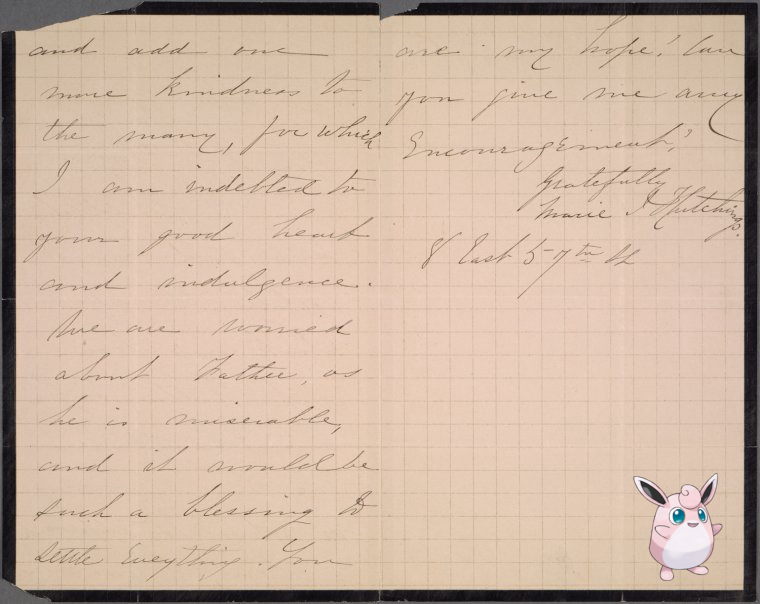 and add one
more kindness to
the many, for which
I am indebted to
your good heart
and indulgence.
We are worried
about Father, as
he is miserable,
and it would be
such a blessing to
settle Everything. You
are my hope! Can
you give me any
Encouragement?
Gratefully
Marie J Hutchings.
8 East 57th St